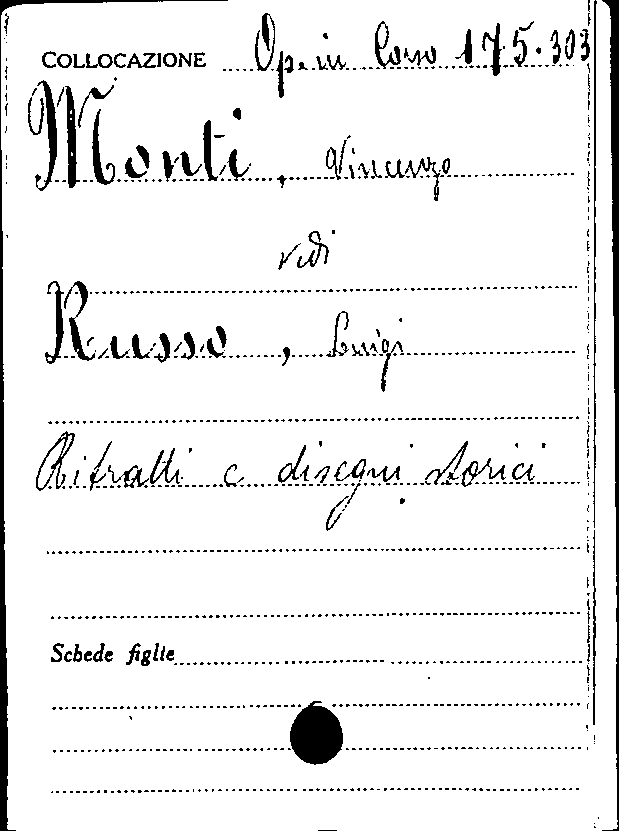 COLLOCAZIONE Op. in Corso 175.303
Monti, Vincenzo
vedi
Russo, Luigi
Ritratti e disegni storici
Schede figlie